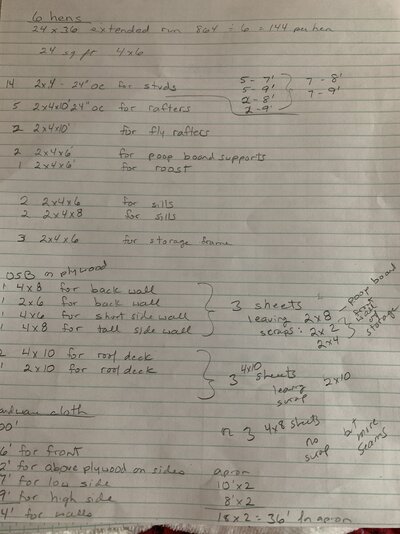 6 hens
24 x 36 extended run 864 ÷ 6 = 144 per hen
24 sq ft 4x6
14 2x4 - 24" oc for studs
5 - 7'
5 - 9'
2 - 8'
2 - 9'
7 - 8'
7 - 9'
5 2x4x10' 24" oc for rafters
2 2x4x10' for fly rafters
2 2x4x6' for poop board supports
1 2x4x6' for roost
2 2x4x6 for sills
2 2x4x8 for sills
3 2x4x6 for storage frame
OSB or plywood
1 4x8 for back wall
1 2x6 for back wall
1 4x6 for short side wall
1 4x8 for tall side wall
3 sheets
leaving 2x8 - poop board
scraps: 2x2
2x4
front wall of storage
2 4x10 for roof deck
1 2x10 for roof deck
3 4x10 sheets
leaving 2x10
scrap
or 3 4x8 sheets
no scrap
but more seams
cloth
00'
6' for front
2' for above plywood on sides
7' for low side
9' for high side
4' for walls
apron
10' x 2
8' x 2
18 x 2 = 36' for apron